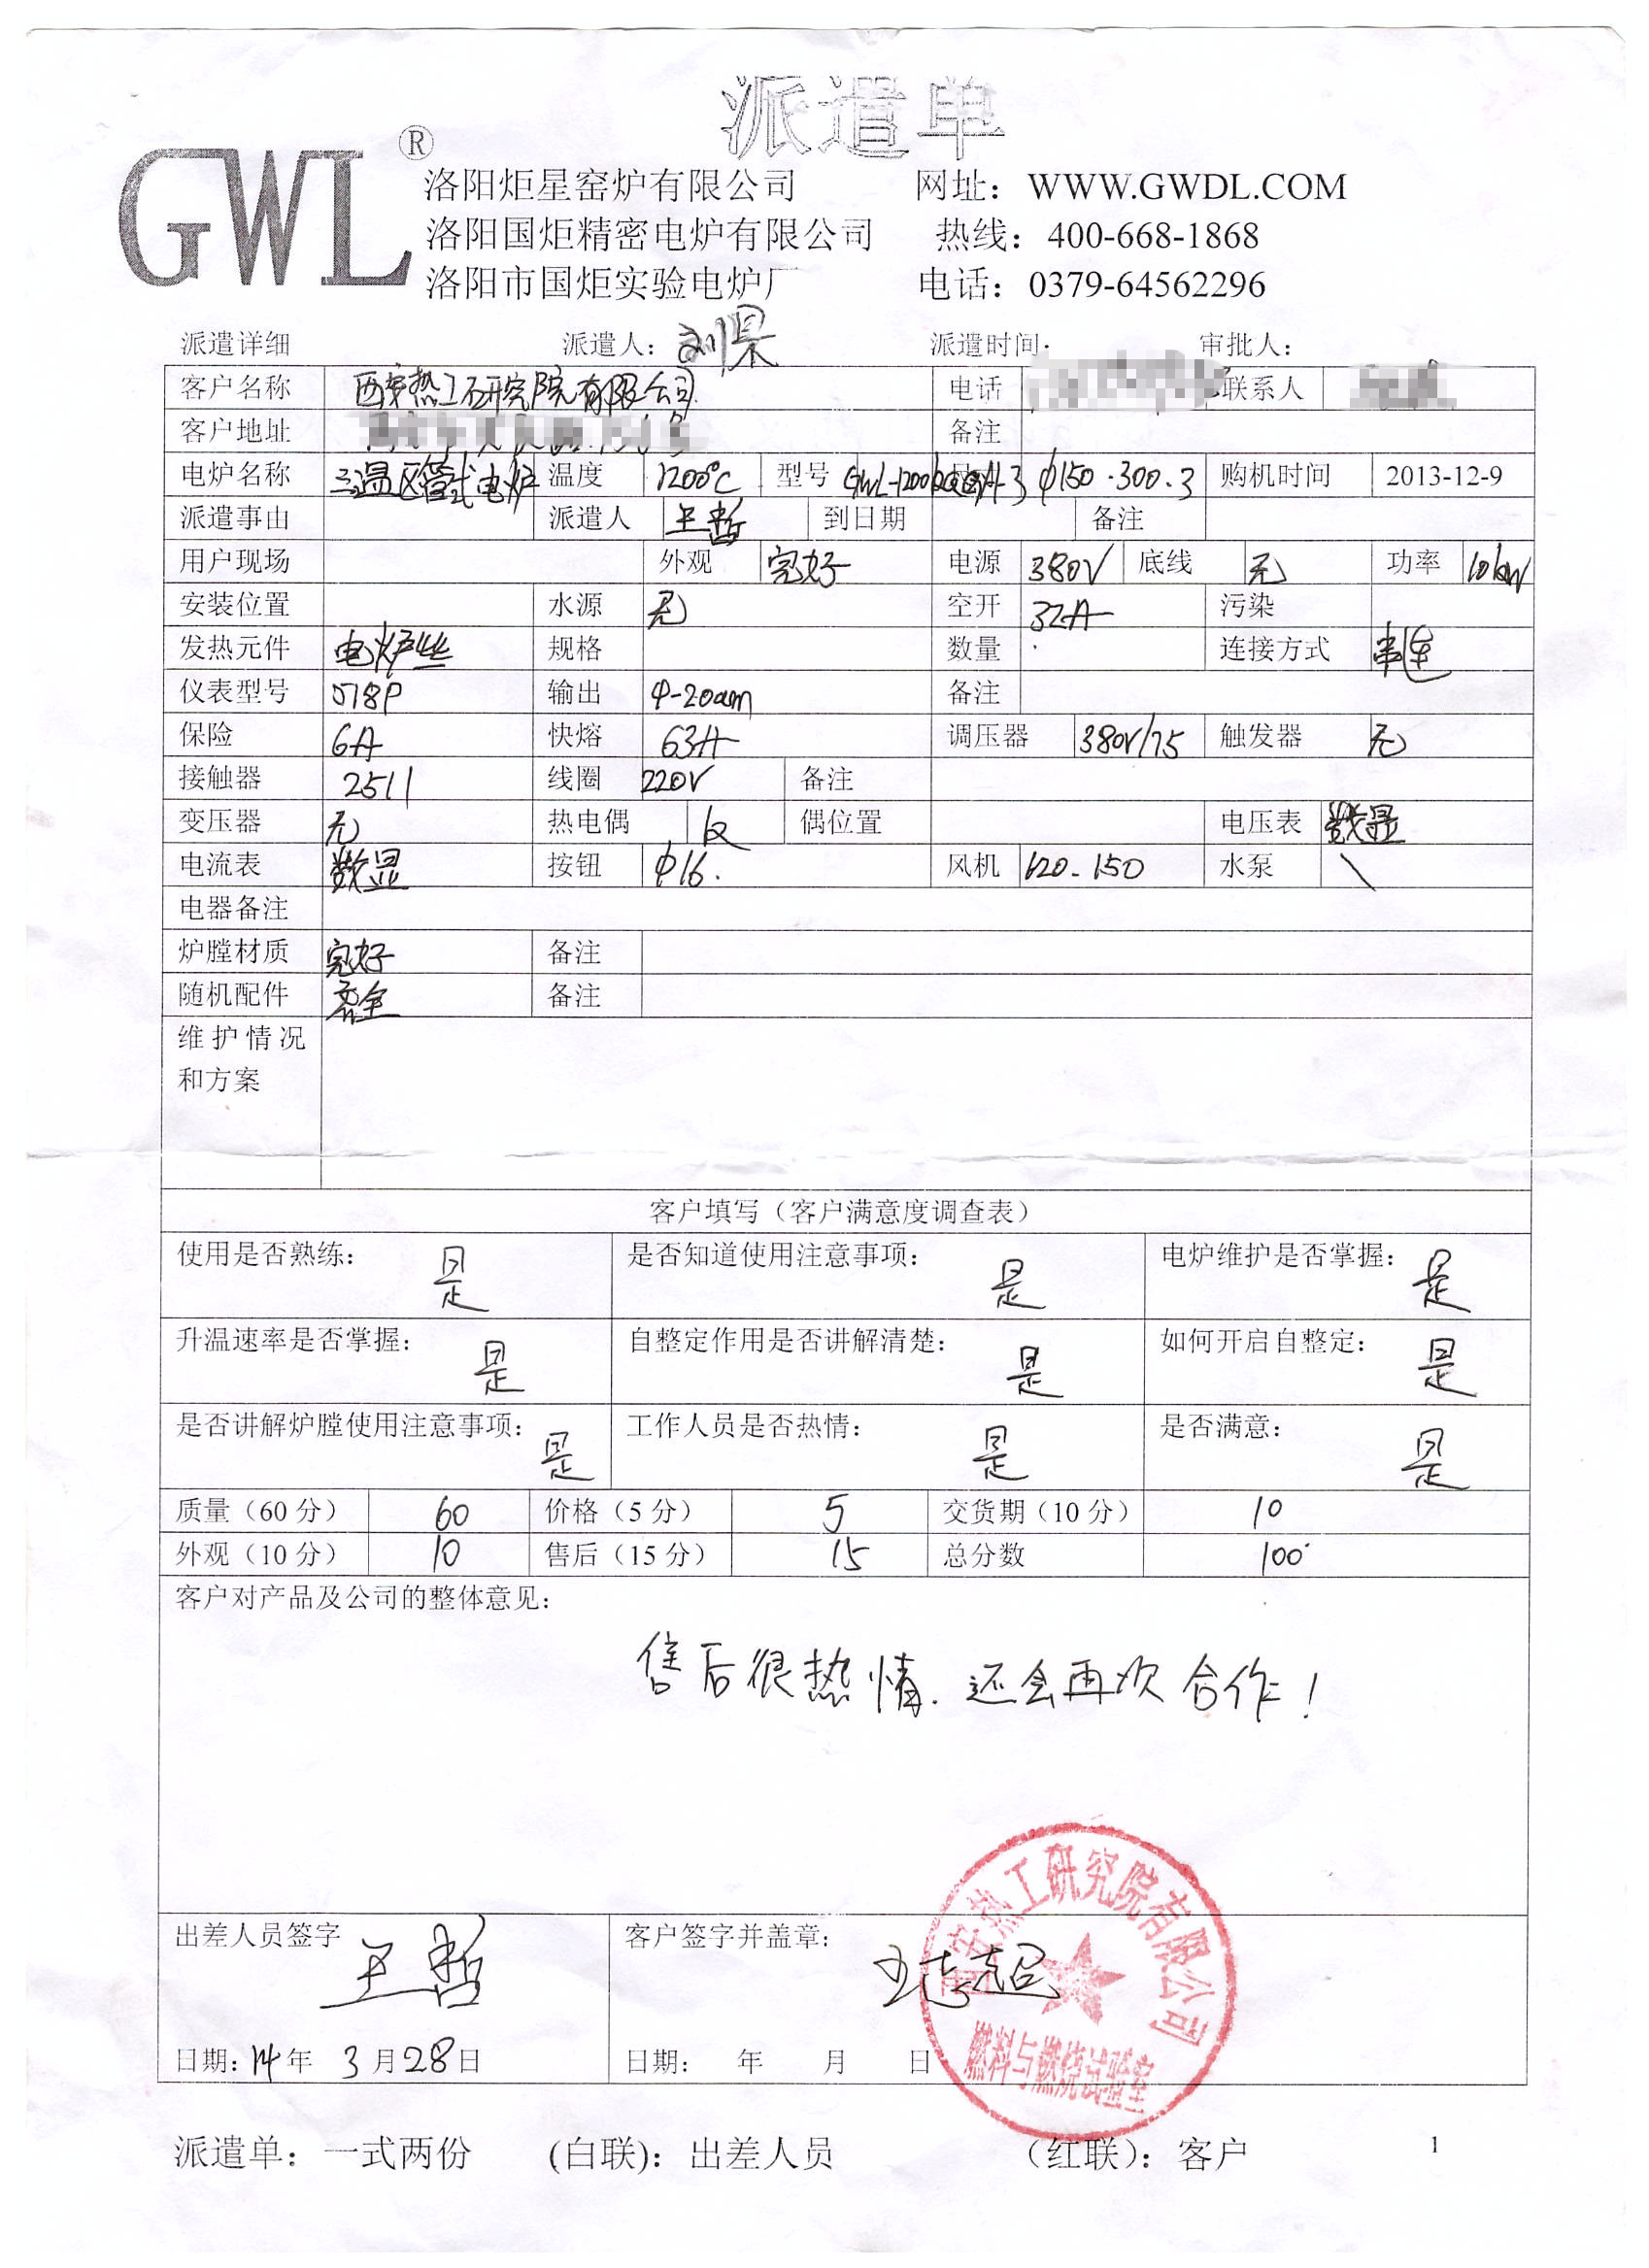 派遣单
GWL®
洛阳炬星窑炉有限公司 网址：WWW.GWDL.COM
洛阳国炬精密电炉有限公司 热线：400-668-1868
洛阳市国炬实验电炉厂 电话：0379-64562296
派遣详细 派遣人：刘果 派遣时间： 审批人：
客户名称 西安热工研究院有限公司 电话 联系人
客户地址 备注
电炉名称 三温区管式电炉 温度 1200℃ 型号 Φ150·300·3 购机时间 2013-12-9
派遣事由 派遣人 王哲 到日期 备注
用户现场 外观 完好 电源 380V 底线 无 功率 10kW
安装位置 水源 无 空开 32A 污染
发热元件 电炉丝 规格 数量 连接方式 串连
仪表型号 518P 输出 4-20am 备注
保险 6A 快熔 63A 调压器 380V/75 触发器 无
接触器 2511 线圈 220V 备注
变压器 无 热电偶 K 偶位置 电压表 数显
电流表 数显 按钮 Φ16. 风机 120-150 水泵 \
电器备注
炉膛材质 完好 备注
随机配件 齐全 备注
维护情况
和方案
客户填写（客户满意度调查表）
使用是否熟练：是 是否知道使用注意事项：是 电炉维护是否掌握：是
升温速率是否掌握：是 自整定作用是否讲解清楚：是 如何开启自整定：是
是否讲解炉膛使用注意事项：是 工作人员是否热情：是 是否满意：是
质量（60分） 60 价格（5分） 5 交货期（10分） 10
外观（10分） 10 售后（15分） 15 总分数 100
客户对产品及公司的整体意见：
售后很热情.还会再次合作！
出差人员签字 王哲 客户签字并盖章：
西安热工研究院有限公司
燃料与燃烧试验室
日期：14年 3月28日 日期： 年 月 日
派遣单：一式两份 (白联)：出差人员 （红联）：客户 1